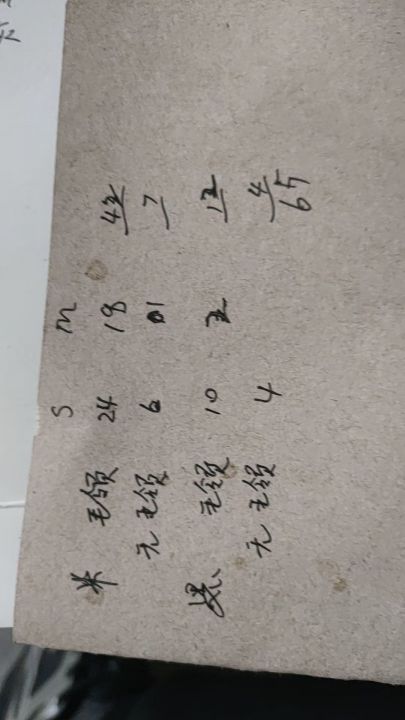 S M
米 毛领 24 18 42
无毛领 6 1 7
黑 毛领 10 2 12
无毛领 4 4
65